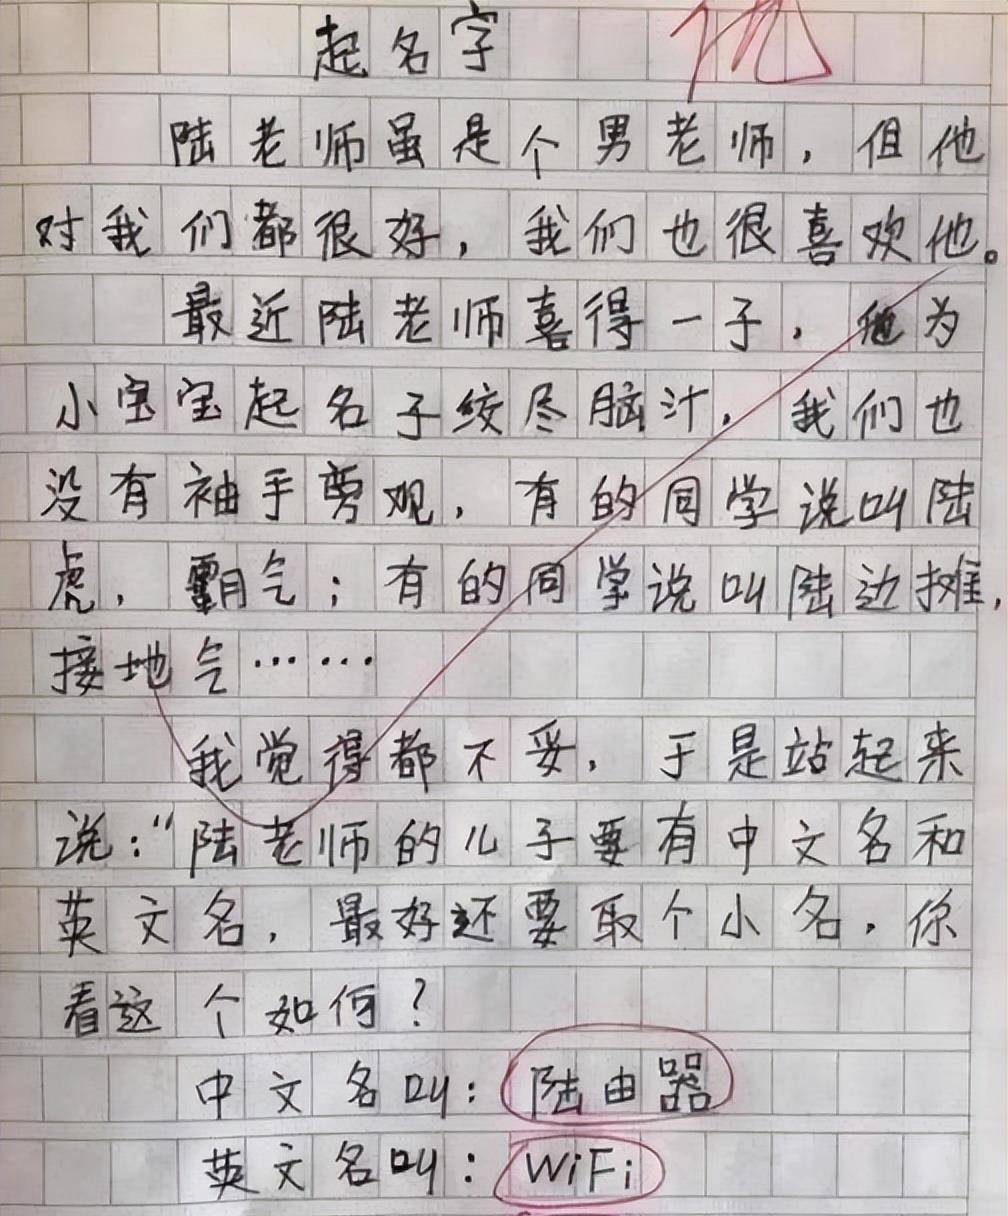 起名字
陆老师虽是个男老师，但他
对我们都很好，我们也很喜欢他。
最近陆老师喜得一子，他为
小宝宝起名子绞尽脑汁，我们也
没有袖手旁观，有的同学说叫陆
虎，霸气；有的同学说叫陆边摊，
接地气……
我觉得都不妥，于是站起来
说：“陆老师的儿子要有中文名和
英文名，最好还要取个小名，你
看这个如何？
中文名叫：陆由器
英文名叫：WiFi